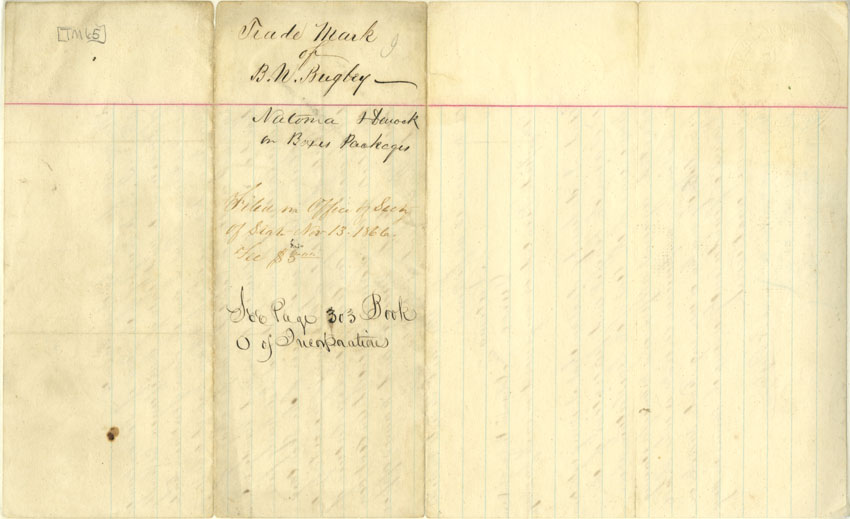 [TM65]
Trade Mark
of
B. N. Bugbey
Natoma
on Boxes Packages
Filed in Office of Secty
of State Nov 13 1866.
Fee $5
See Page 303 Book
O of Incorporation